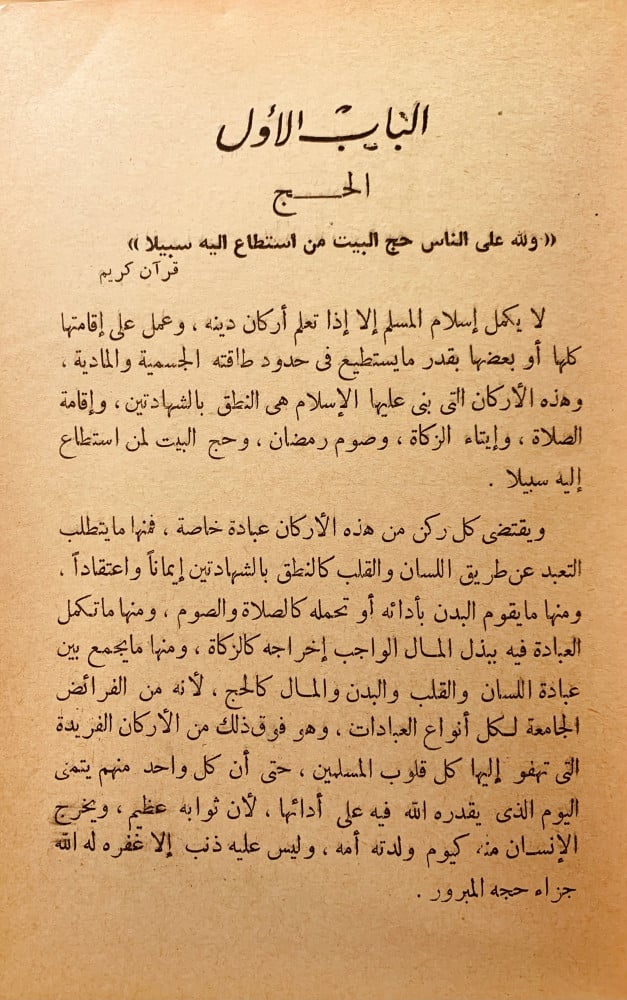 الباب الأول
الحـــج
« ولله على الناس حج البيت من استطاع اليه سبيلا »
قرآن كريم
لا يكمل إسلام المسلم إلا إذا تعلم أركان دينه ، وعمل على إقامتها
كلها أو بعضها بقدر مايستطيع فى حدود طاقته الجسمية والمادية ،
وهذه الأركان التى بنى عليها الإسلام هى النطق بالشهادتين ، وإقامة
الصلاة ، وإيتاء الزكاة ، وصوم رمضان ، وحج البيت لمن استطاع
إليه سبيلا .
ويقتضى كل ركن من هذه الأركان عبادة خاصة ، فمنها مايتطلب
التعبد عن طريق اللسان والقلب كالنطق بالشهادتين إيماناً واعتقاداً ،
ومنها مايقوم البدن بأدائه أو تحمله كالصلاة والصوم ، ومنها ماتكمل
العبادة فيه ببذل المـال الواجب إخراجه كالزكاة ، ومنها مايجمع بين
عبادة اللسان والقلب والبدن والمـال كالحج ، لأنه من الفرائض
الجامعة لـكل أنواع العبادات ، وهو فوق ذلك من الأركان الفريدة
التى تهفو إليها كل قلوب المسلمين ، حتى أن كل واحد منهم يتمنى
اليوم الذى يقدره الله فيه على أدائها ، لأن ثوابه عظيم ، ويخرج
الإنسـان منه كيوم ولدته أمه ، وليس عليه ذنب إلا غفره له الله
جزاء حجه المبرور .